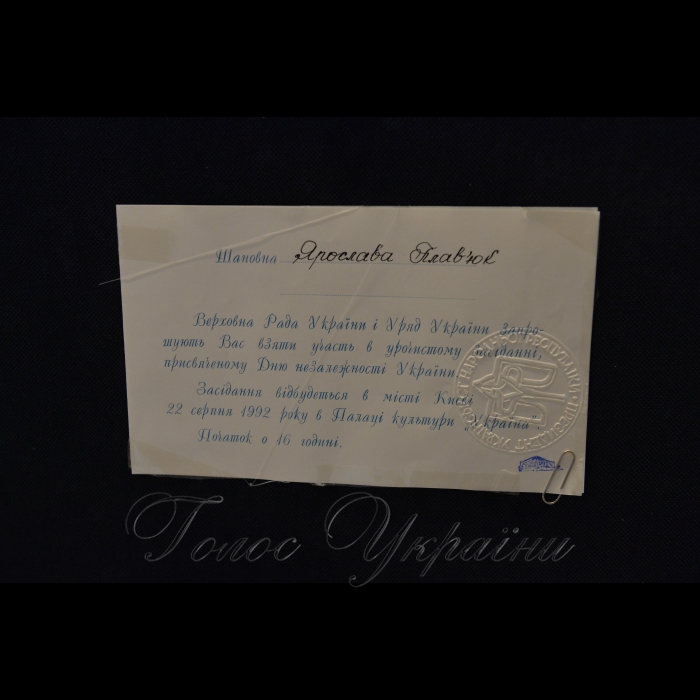 Шановна Ярослава Плав'юк
Верховна Рада України і Уряд України запро-
шують Вас взяти участь в урочистому засіданні,
присвяченому Дню незалежності України.
Засідання відбудеться в місті Києві
22 серпня 1992 року в Палаці культури „Україна".
Початок о 16 годині.
Голос України